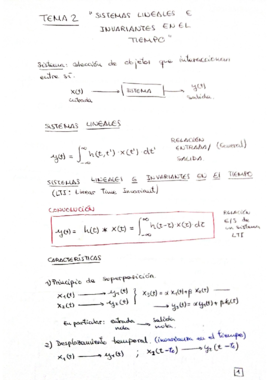 TEMA 2 "SISTEMAS LINEALES E
INVARIANTES EN EL
TIEMPO"
Sistema: colección de objetos que interaccionan
entre sí.
x(t) → SISTEMA → y(t)
entrada salida
SISTEMAS LINEALES
y(t) = ∫_{-∞}^{∞} h(t,t') · x(t') · dt'
RELACIÓN
ENTRADA/ (General)
SALIDA
SISTEMAS LINEALES E INVARIANTES EN EL TIEMPO
(LTI: Linear Time Invariant)
CONVOLUCIÓN
y(t) = h(t) * x(t) = ∫_{-∞}^{∞} h(t-τ) x(τ) dτ
RELACIÓN
E/S de
un sistema
LTI
CARACTERÍSTICAS
1) Principio de superposición
x₁(t) → y₁(t)
x₂(t) → y₂(t)
} x₃(t) = α x₁(t) + β x₂(t) →
→ y₃(t) = α y₁(t) + β y₂(t)
En particular: entrada → salida
nula nula
2) Desplazamiento temporal. (invariancia en el tiempo)
x₁(t) → y₁(t) ; x₁(t-t₀) → y₁(t-t₀)
1